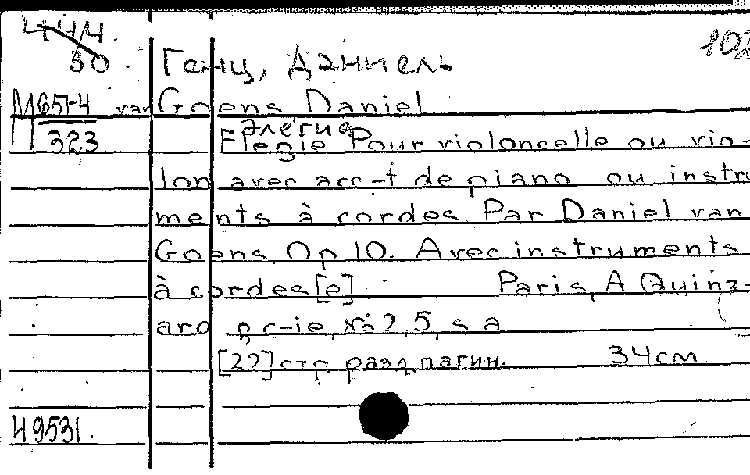 444
30
102
Генц, Даниель
М 651-4
323
van Goens Daniel
элегия
Elegie Pour violoncelle ou vio-
lon avec acc-t de piano ou instru
ments à cordes. Par Daniel van
Goens Op 10. Avec instruments
à cordes [e] Paris, A Quinz-
ard s.a
[22] стр. разд. пагин. 34 см
49531.